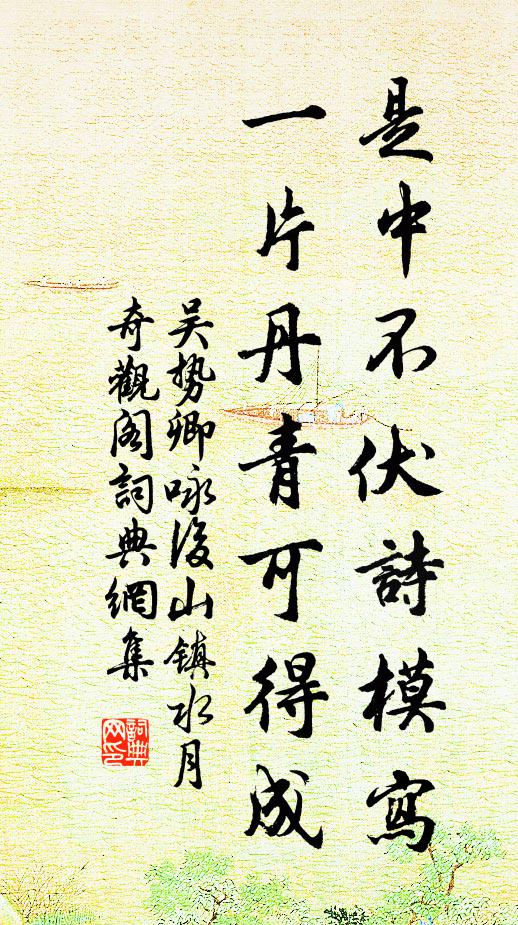 是中不伏詩模寫
一片丹青可得成
吴势卿咏後山镇水月
奇觀阁詞典網集
詞典
网印